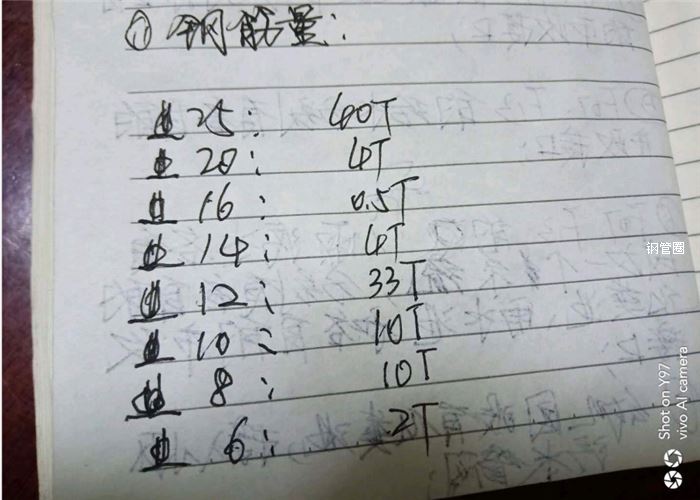 ① 钢筋量:
⏀ 25: 40T
⏀ 20: 4T
⏀ 16: 0.5T
⏀ 14: 4T
⏀ 12: 33T
⏀ 10: 10T
⏀ 8: 10T
⏀ 6: 2T
钢管圈
Shot on Y97
vivo AI camera